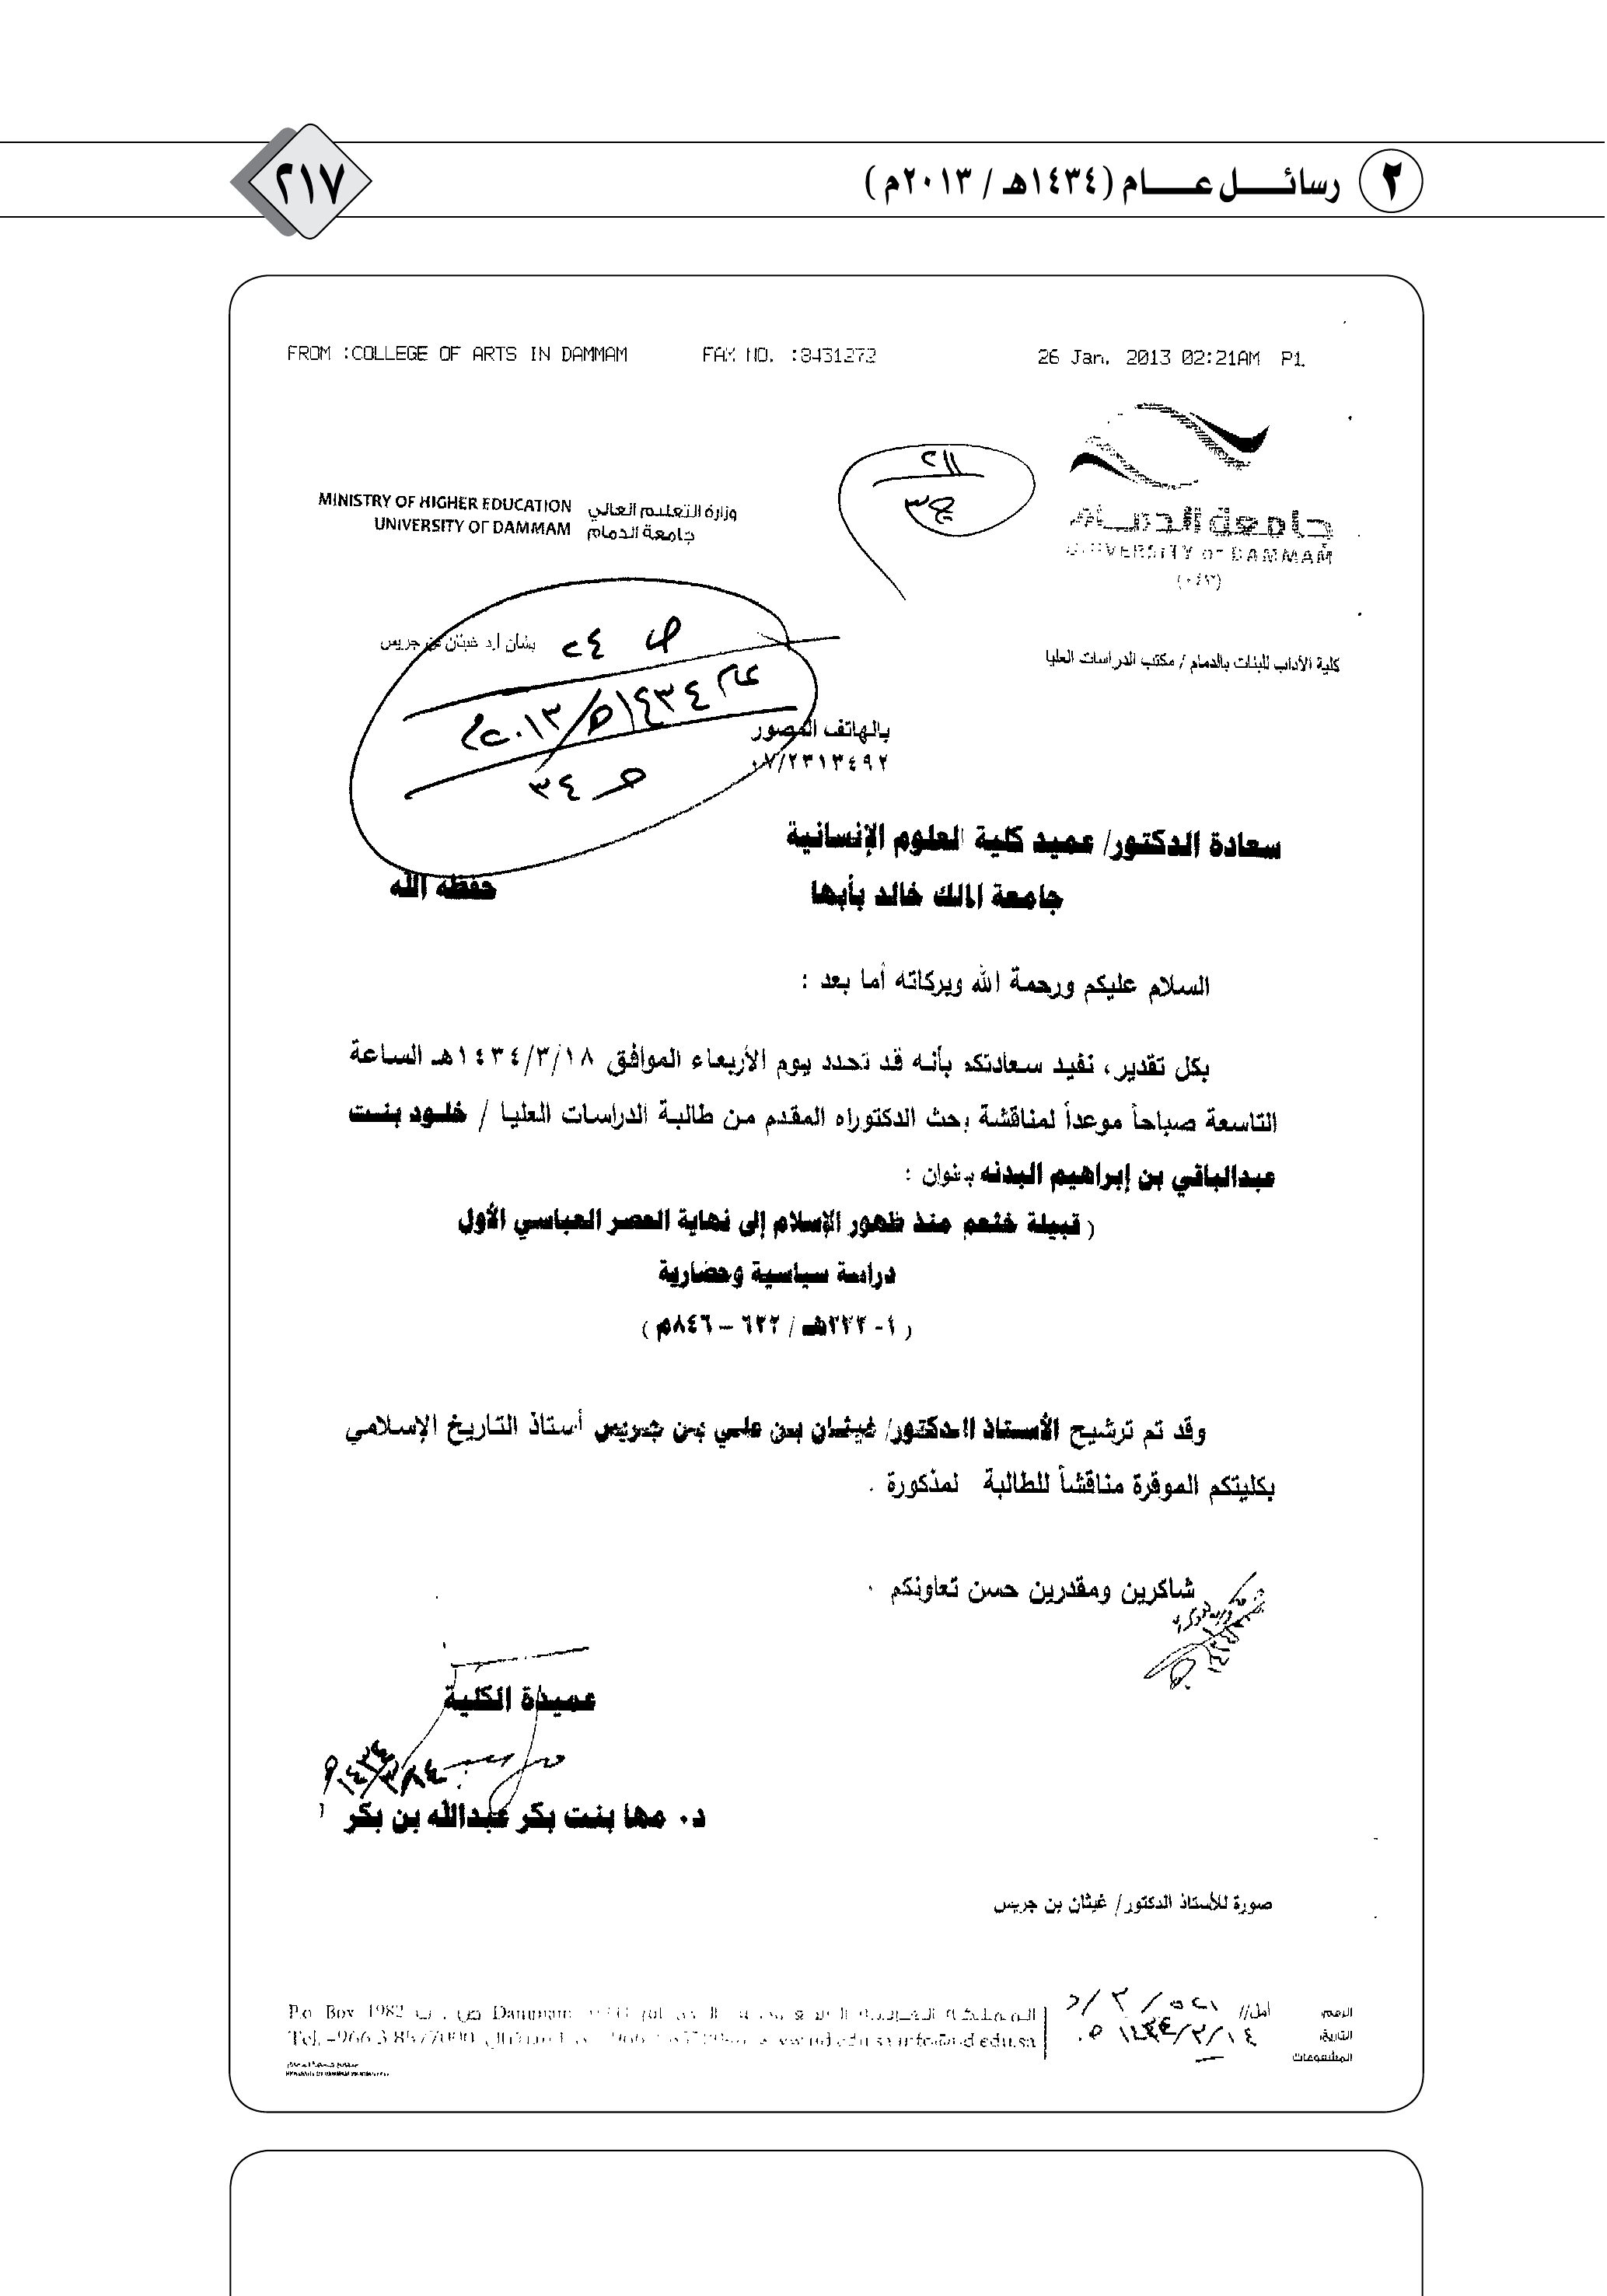 ٢ رسائل عام (١٤٣٤هـ / ٢٠١٣م)
٢١٧
FROM :COLLEGE OF ARTS IN DAMMAM FAX NO. :8431272 26 Jan. 2013 02:21AM P1
جامعة الدمام
UNIVERSITY OF DAMMAM
MINISTRY OF HIGHER EDUCATION وزارة التعليم العالي
UNIVERSITY OF DAMMAM جامعة الدمام
كلية الآداب للبنات بالدمام / مكتب الدراسات العليا
بشأن أ.د غيثان بن جريس
ص ٢٤
عام ١٤٣٤هـ/٢٠١٣م
بالهاتف المصور
٠٧/٢٣١٣٤٩٢
سعادة الدكتور/ عميد كلية العلوم الإنسانية
جامعة الملك خالد بأبها حفظه الله
السلام عليكم ورحمة الله وبركاته أما بعد :
بكل تقدير، نفيد سعادتكم بأنه قد تحدد يوم الأربعاء الموافق ١٤٣٤/٣/١٨هـ الساعة
التاسعة صباحاً موعداً لمناقشة بحث الدكتوراه المقدم من طالبة الدراسات العليا / خلود بنت
عبدالباقي بن إبراهيم البدنه بعنوان :
( قبيلة خثعم منذ ظهور الإسلام إلى نهاية العصر العباسي الأول
دراسة سياسية وحضارية
( ١- ٢٣٢هـ / ٦٢٢ – ٨٤٦م )
وقد تم ترشيح الأستاذ الدكتور/ غيثان بن علي بن جريس أستاذ التاريخ الإسلامي
بكليتكم الموقرة مناقشاً للطالبة المذكورة .
شاكرين ومقدرين حسن تعاونكم .
عميدة الكلية
د. مها بنت بكر عبدالله بن بكر
صورة للأستاذ الدكتور/ غيثان بن جريس
الرقم
التاريخ ١٤٣٤/٣/١٤
المشفوعات
P.o. Box 1982 ص . ب Dammam